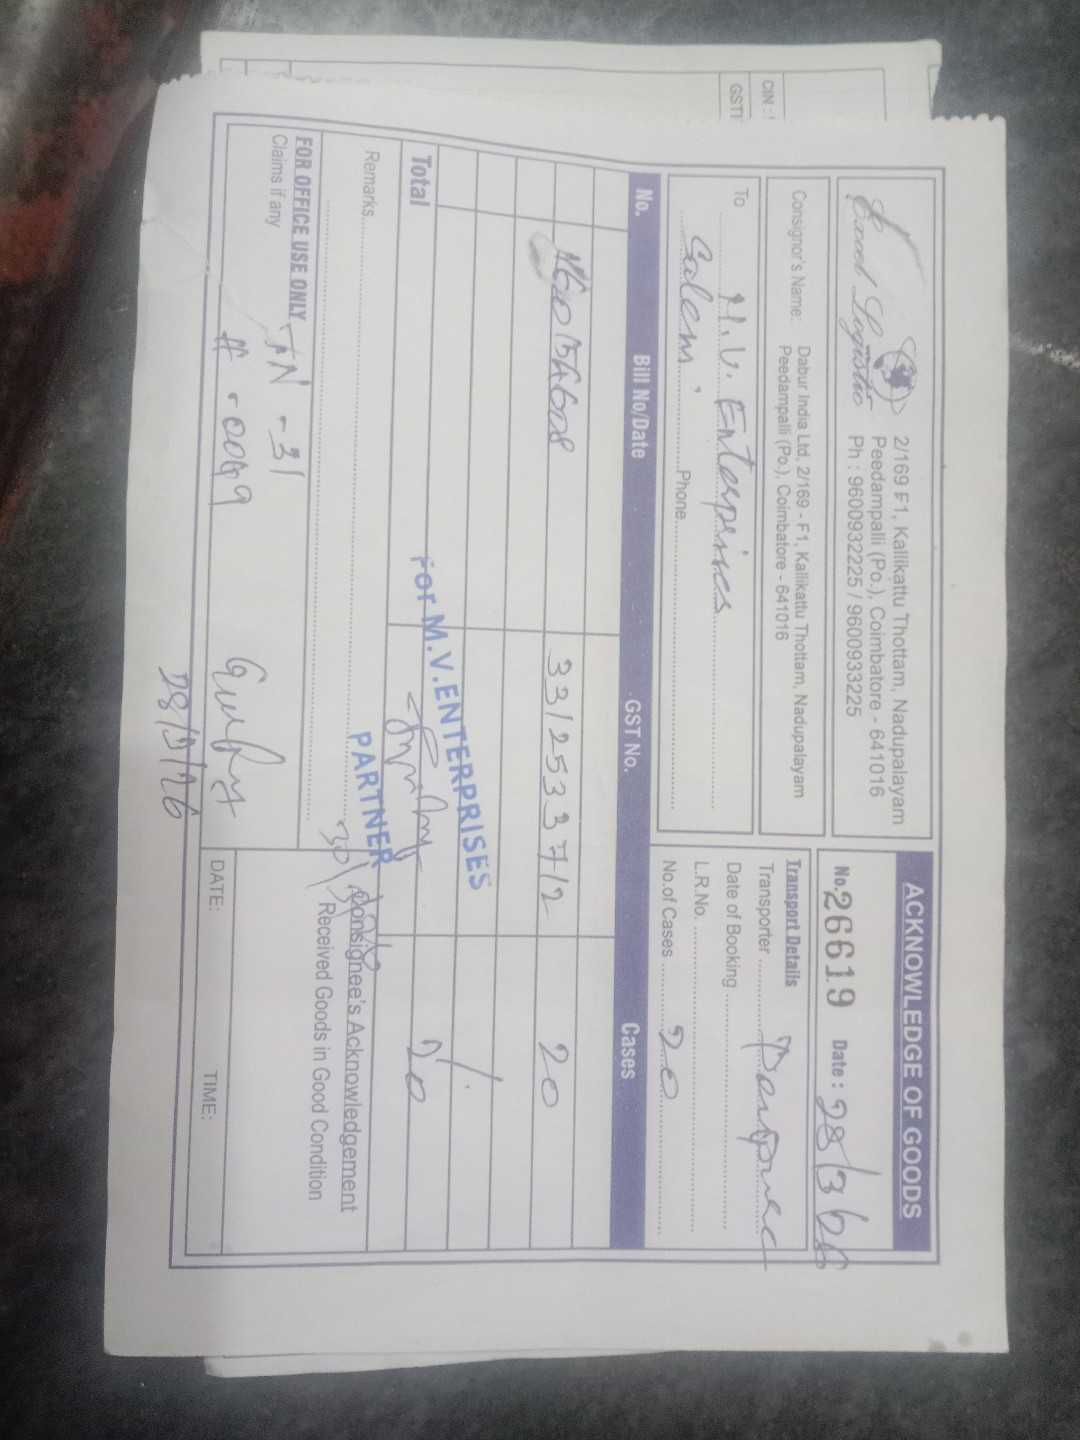 Excel Logistic
2/169 F1, Kallikattu Thottam, Nadupalayam
Peedampalli (Po.), Coimbatore - 641016
Ph : 9600932225 / 9600933225
ACKNOWLEDGE OF GOODS
No. 26619 Date : 28/3/26
Consignor's Name: Dabur India Ltd, 2/169 - F1, Kallikattu Thottam, Nadupalayam
Peedampalli (Po.), Coimbatore - 641016
Transport Details
Transporter
To M.V. Enterprises
Date of Booking
L.R.No.
Salem. Phone
No.of Cases 20
No. Bill No/Date GST No. Cases
331253712 20
Total 20
for M.V.ENTERPRISES
PARTNER
Remarks
30/3/26
Consignee's Acknowledgement
Received Goods in Good Condition
FOR OFFICE USE ONLY
Claims if any
TN - 31
# - 0099
28/3/26
DATE: TIME:
CIN :
GSTI